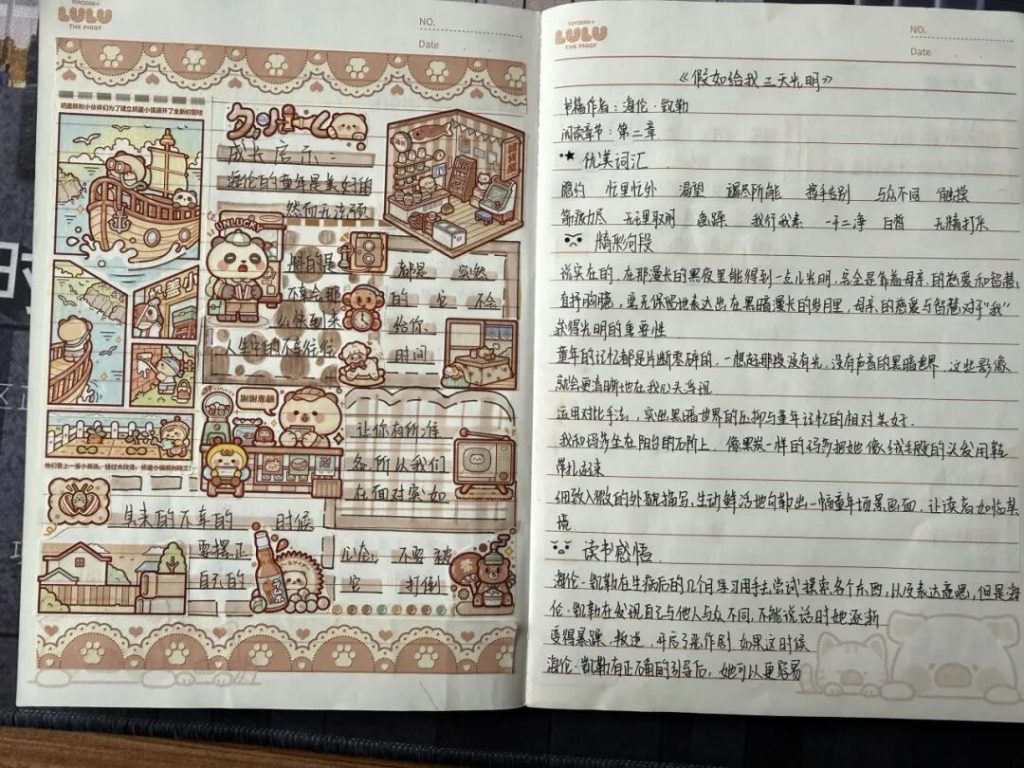 TOYZERO+
LULU
THE PIGGY
NO.
Date
成长启示：
海伦的童年是美好的
然而无法预
料的是
都是 突然
不幸会那
的 它 不会
么快到来
给你
人生中的不幸往往
时间
UNLUCKY
謝謝惠顧
让你有所准
备 所以我们
在面对突如
其来的不幸的 时候
要摆正 心态， 不要被
自己的 它 打倒
TOYZERO+
LULU
THE PIGGY
NO.
Date
《假如给我三天光明》
书籍作者：海伦·凯勒
阅读章节：第二章
优美词汇
隐约 忙里忙外 渴望 竭尽所能 挥手告别 与众不同 触摸
筋疲力尽 无理取闹 急躁 我行我素 一干二净 白皙 无精打采
精彩句段
说实在的，在那漫长的黑夜里能得到一点儿光明，完全是靠着母亲的慈爱和智慧，
直抒胸臆，更真情地表达出在黑暗漫长的岁月里，母亲的慈爱与智慧对于“我”
获得光明的重要性
童年的记忆都是片断零碎的，一想起那段没有光，没有声音的黑暗世界，这些影像
就会更清晰地在我心头浮现
运用对比手法，突出黑暗世界的压抑与童年记忆的相对美好.
我和玛莎坐在阳台的石阶上，像黑炭一样的玛莎把她像绒毛般的头发用鞋
带扎起来
细致入微的外貌描写，生动鲜活地勾勒出一幅童年场景画面，让读者如临其
境
读书感悟
海伦·凯勒在生病后的几个月练习用手去尝试摸索各个东西，以及表达意思，但是海
伦·凯勒在发现自己与他人与众不同，不能说话时她逐渐
变得暴躁、叛逆，开启了恶作剧 如果这时候
海伦·凯勒有正确的引导后，她可以更容易